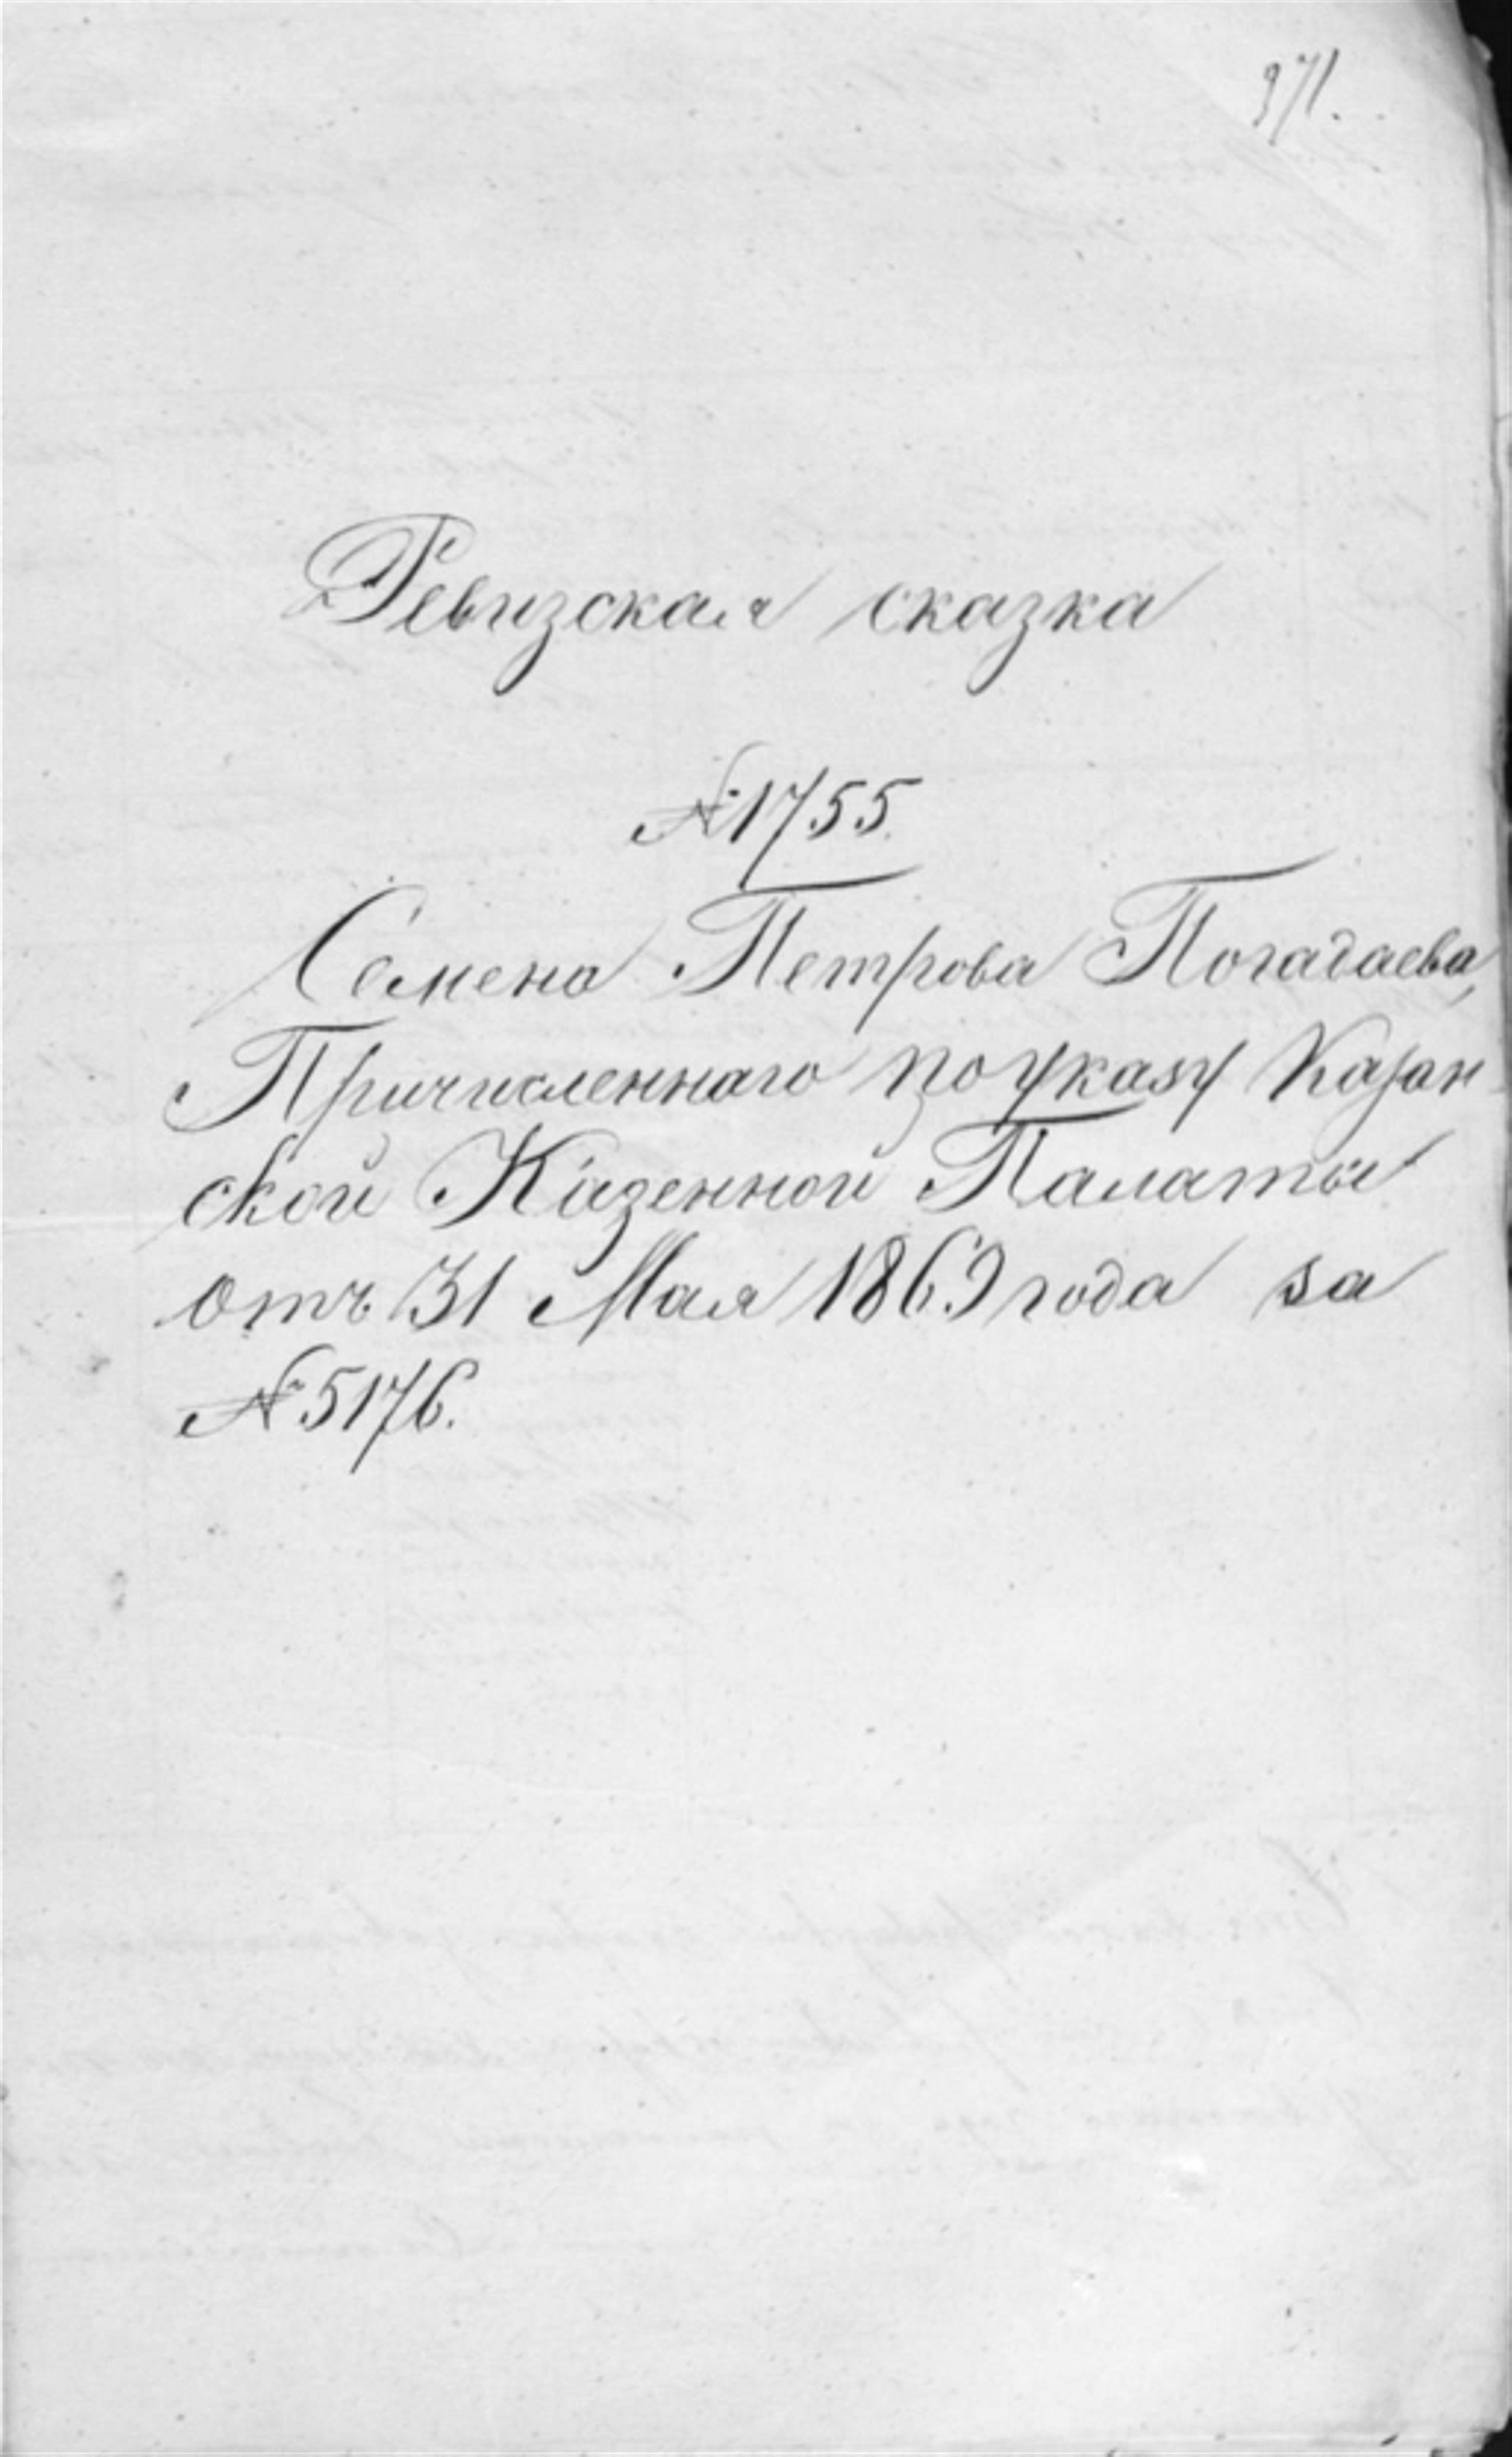 971.
Ревизская сказка
№ 1755.
Семена Петрова Погадаева,
Причисленнаго по указу Казан
ской Казенной Палаты
отъ 31 Мая 1869 года за
№ 5176.